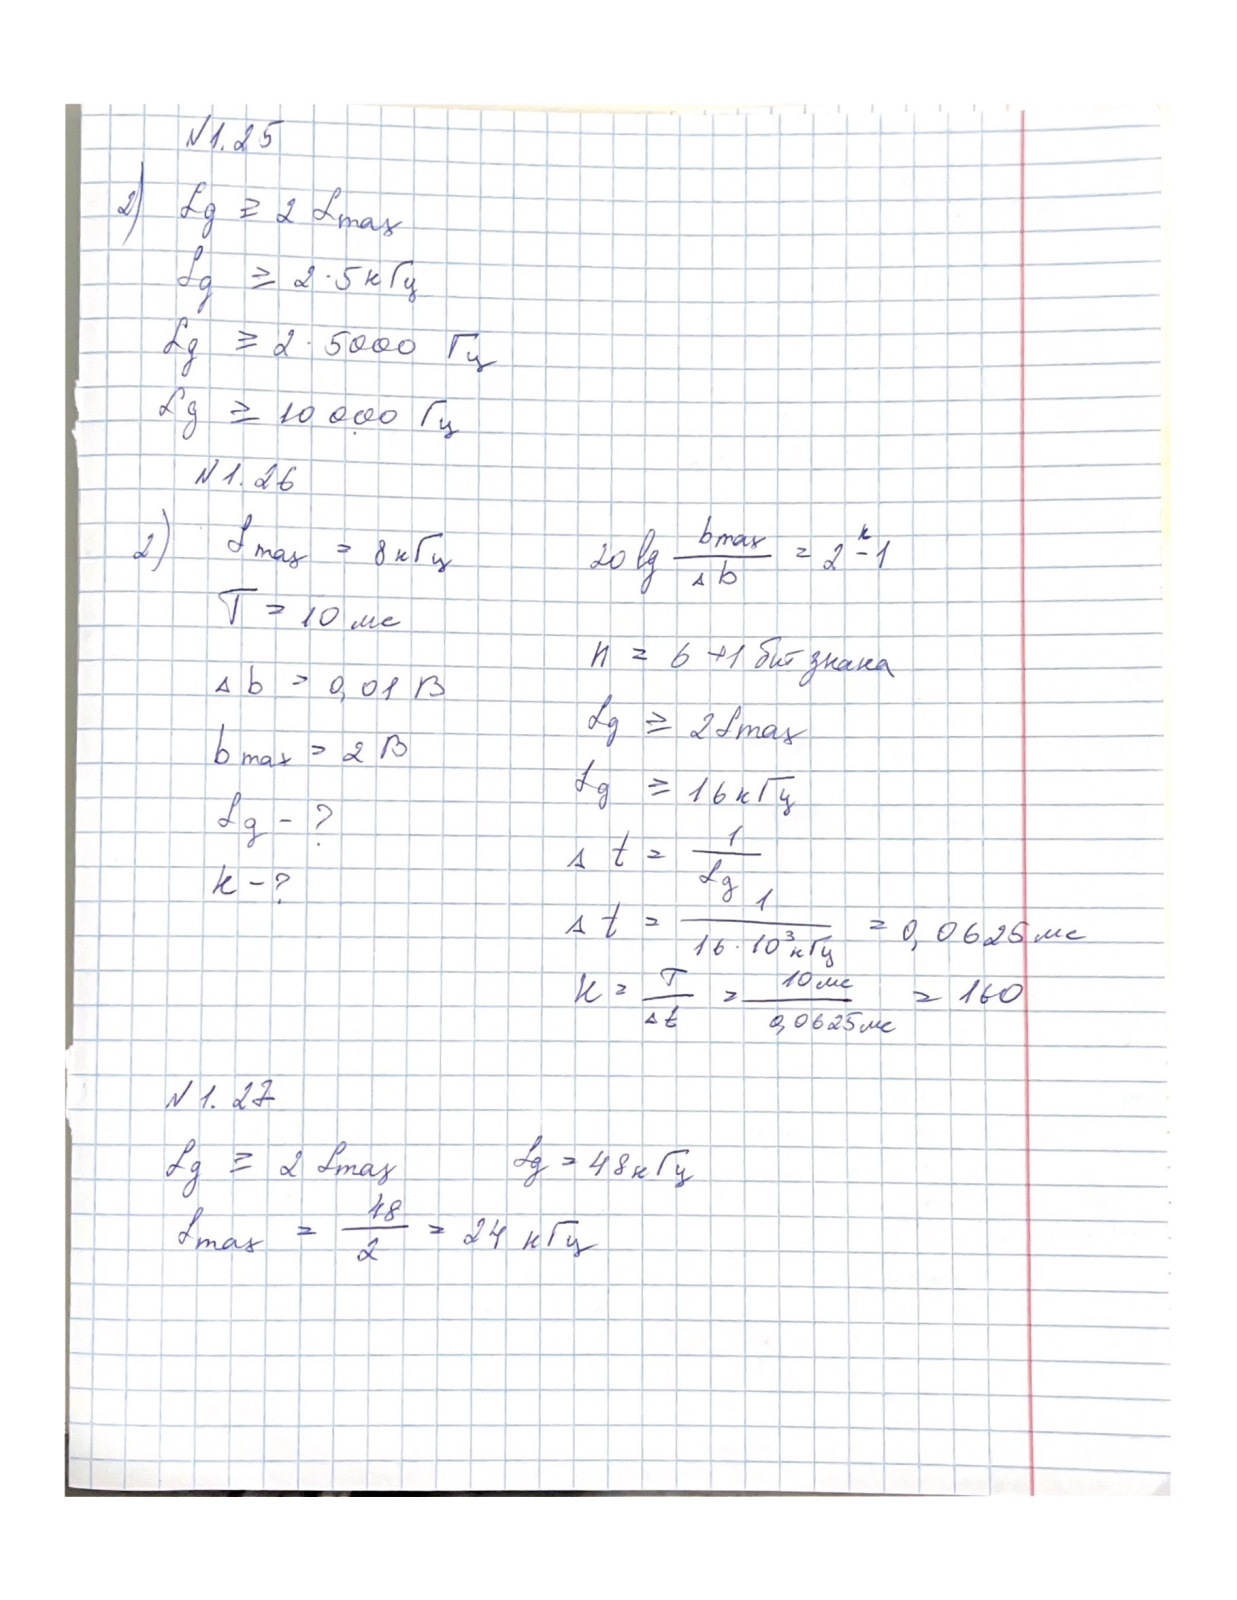 N1.25
2) fg ≥ 2 fmax
fg ≥ 2·5кГц
fg ≥ 2·5000 Гц
fg ≥ 10000 Гц
N1.26
2) fmax = 8кГц
T = 10 мс
Δb = 0,01 В
bmax = 2 В
fg - ?
k - ?
20 lg bmax/Δb = 2^k - 1
n = 6 + 1 бит знака
fg ≥ 2fmax
fg ≥ 16кГц
Δt = 1/fg
Δt = 1/16·10³кГц = 0,0625мс
k = T/Δt = 10мс/0,0625мс = 160
N1.27
fg ≥ 2 fmax fg = 48кГц
fmax = 48/2 = 24 кГц